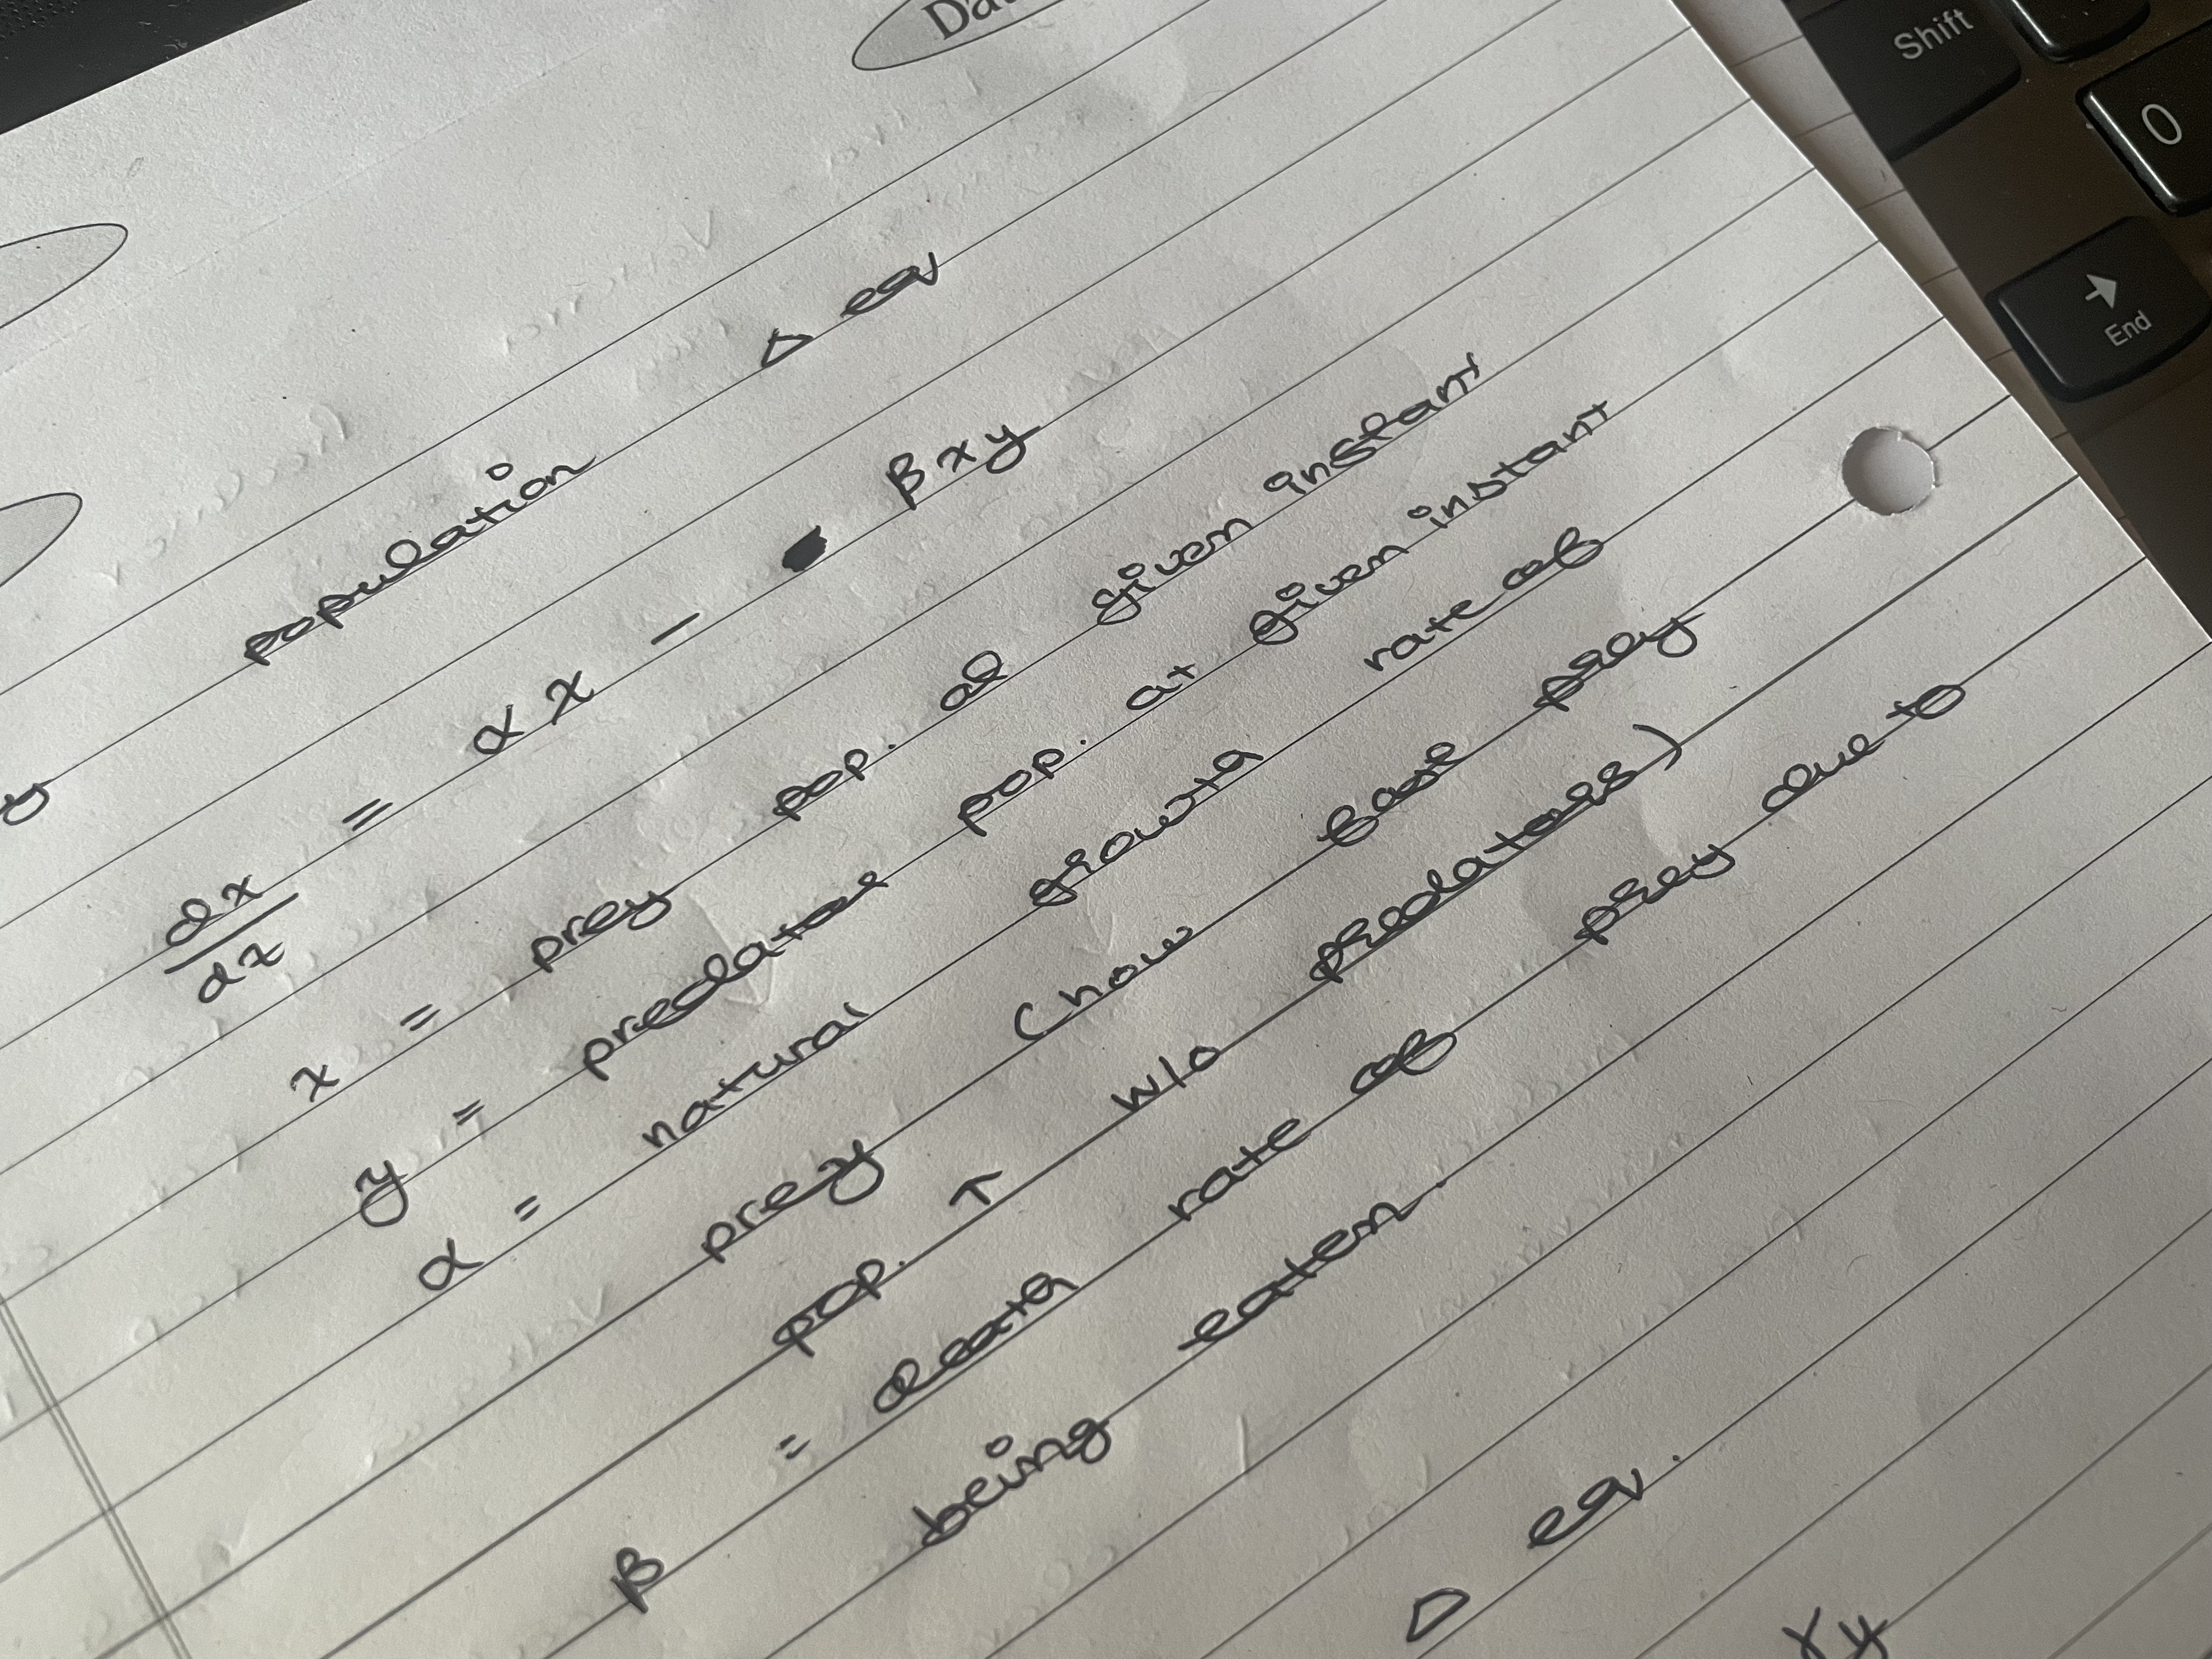 population Δ eq
dx/dt = αx - βxy
x = prey pop. at given instant
y = predator pop. at given instant
α = natural growth rate of
prey (how fast prey
pop. ↑ w/o predators)
β = death rate of prey due to
being eaten.
Δ eq.
γy
Shift
0
End